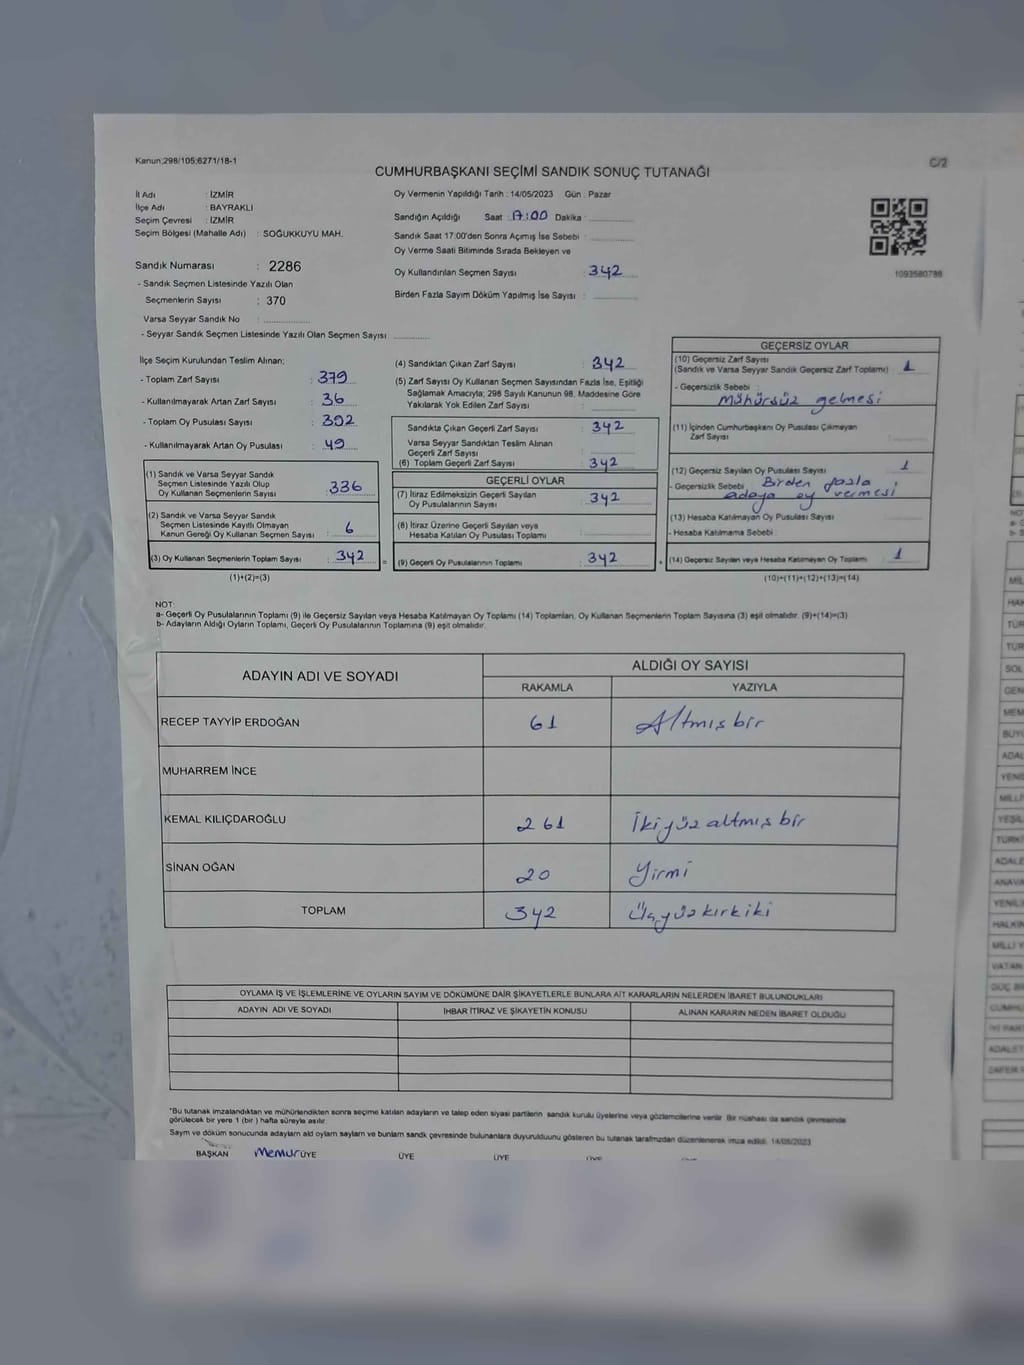 Kanun;298/105;6271/18-1
C/2
CUMHURBAŞKANI SEÇİMİ SANDIK SONUÇ TUTANAĞI
İl Adı : İZMİR
İlçe Adı : BAYRAKLI
Seçim Çevresi : İZMİR
Seçim Bölgesi (Mahalle Adı) : SOĞUKKUYU MAH.
Sandık Numarası : 2286
- Sandık Seçmen Listesinde Yazılı Olan
Seçmenlerin Sayısı : 370
Varsa Seyyar Sandık No :
- Seyyar Sandık Seçmen Listesinde Yazılı Olan Seçmen Sayısı :
Oy Vermenin Yapıldığı Tarih : 14/05/2023 Gün : Pazar
Sandığın Açıldığı Saat : 17:00 Dakika :
Sandık Saat 17:00'den Sonra Açımış İse Sebebi :
Oy Verme Saati Bitiminde Sırada Bekleyen ve
Oy Kullandırılan Seçmen Sayısı : 342
Birden Fazla Sayım Döküm Yapılmış İse Sayısı :
1093580786
İlçe Seçim Kurulundan Teslim Alınan;
- Toplam Zarf Sayısı : 379
- Kullanılmayarak Artan Zarf Sayısı : 36
- Toplam Oy Pusulası Sayısı : 392
- Kullanılmayarak Artan Oy Pusulası : 49
(1) Sandık ve Varsa Seyyar Sandık
Seçmen Listesinde Yazılı Olup
Oy Kullanan Seçmenlerin Sayısı : 336
(2) Sandık ve Varsa Seyyar Sandık
Seçmen Listesinde Kayıtlı Olmayan
Kanun Gereği Oy Kullanan Seçmen Sayısı : 6
(3) Oy Kullanan Seçmenlerin Toplam Sayısı : 342
(1)+(2)=(3)
(4) Sandıktan Çıkan Zarf Sayısı : 342
(5) Zarf Sayısı Oy Kullanan Seçmen Sayısından Fazla İse, Eşitliği
Sağlamak Amacıyla; 298 Sayılı Kanunun 98. Maddesine Göre
Yakılarak Yok Edilen Zarf Sayısı :
Sandıkta Çıkan Geçerli Zarf Sayısı : 342
Varsa Seyyar Sandıktan Teslim Alınan
Geçerli Zarf Sayısı :
(6) Toplam Geçerli Zarf Sayısı : 342
GEÇERLİ OYLAR
(7) İtiraz Edilmeksizin Geçerli Sayılan
Oy Pusulalarının Sayısı : 342
(8) İtiraz Üzerine Geçerli Sayılan veya
Hesaba Katılan Oy Pusulası Toplamı :
= (9) Geçerli Oy Pusulalarının Toplamı : 342 +
GEÇERSİZ OYLAR
(10) Geçersiz Zarf Sayısı
(Sandık ve Varsa Seyyar Sandık Geçersiz Zarf Toplamı) : 1
- Geçersizlik Sebebi :
mühürsüz gelmesi
(11) İçinden Cumhurbaşkanı Oy Pusulası Çıkmayan
Zarf Sayısı :
(12) Geçersiz Sayılan Oy Pusulası Sayısı : 1
- Geçersizlik Sebebi : Birden fazla
adaya oy vermesi
(13) Hesaba Katılmayan Oy Pusulası Sayısı :
- Hesaba Katılmama Sebebi :
(14) Geçersiz Sayılan veya Hesaba Katılmayan Oy Toplamı : 1
(10)+(11)+(12)+(13)=(14)
NOT:
a- Geçerli Oy Pusulalarının Toplamı (9) ile Geçersiz Sayılan veya Hesaba Katılmayan Oy Toplamı (14) Toplamları, Oy Kullanan Seçmenlerin Toplam Sayısına (3) eşit olmalıdır. (9)+(14)=(3)
b- Adayların Aldığı Oyların Toplamı, Geçerli Oy Pusulalarının Toplamına (9) eşit olmalıdır.
ADAYIN ADI VE SOYADI
ALDIĞI OY SAYISI
RAKAMLA YAZIYLA
RECEP TAYYİP ERDOĞAN 61 Altmış bir
MUHARREM İNCE
KEMAL KILIÇDAROĞLU 261 İkiyüz altmış bir
SİNAN OĞAN 20 Yirmi
TOPLAM 342 Üçyüzkırkiki
OYLAMA İŞ VE İŞLEMLERİNE VE OYLARIN SAYIM VE DÖKÜMÜNE DAİR ŞİKAYETLERLE BUNLARA AİT KARARLARIN NELERDEN İBARET BULUNDUKLARI
ADAYIN ADI VE SOYADI İHBAR İTİRAZ VE ŞİKAYETİN KONUSU ALINAN KARARIN NEDEN İBARET OLDUĞU
*Bu tutanak imzalandıktan ve mühürlendikten sonra seçime katılan adayların ve talep eden siyasi partilerin sandık kurulu üyelerine veya gözlemcilerine verilir. Bir nüshası da sandık çevresinde
görülecek bir yere 1 (bir) hafta süreyle asılır.
Sayım ve döküm sonucunda adayların ald oyların sayların ve bunların sandk çevresinde bulunanlara duyurulduunu gösteren bu tutanak tarafmızdan düzenlenerek imza edildi. 14/05/2023
BAŞKAN Memur ÜYE ÜYE ÜYE ÜYE